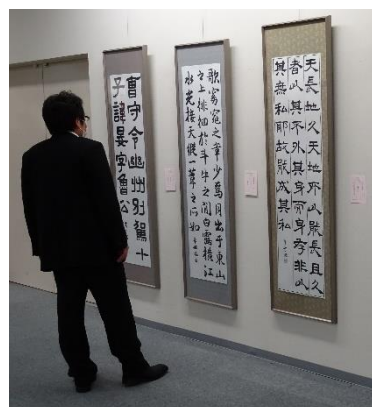 天長地久天地所以能長且久
者以其不外其身而身存非以
其無私耶故能成其私
歌窈窕之章少焉月出于東山
之上徘徊於斗牛之間白露横江
水光接天縱一葦之所如
曹守令幽州別駕十
子諱晏字魯公